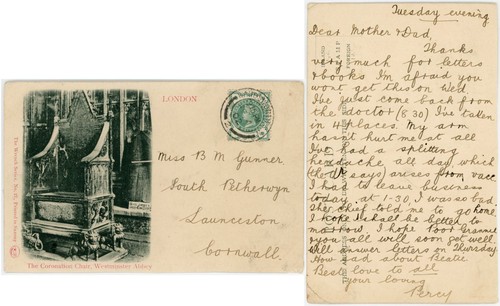 LONDON
Miss B M Gunner
South Petherwyn
Launceston
Cornwall.
The Coronation Chair, Westminster Abbey
Tuesday evening
Dear Mother & Dad,
Thanks
very much for letters
& books I'm afraid you
wont get this on Wed.
I've just come back from
the doctor (8.30) I've taken
in 4 places. My arm
hasn't hurt me at all
I've had a splitting
headache all day, which
(the says) arises from vacc.
I had to leave business
today at 1-30, I was so bad.
The chief told me to go home
I hope I shall be better to
morrow. I hope Poor Grannie
& you all will soon get well.
Will answer letters on Thursday
How sad about Beatie
Best love to all
your loving
Percy